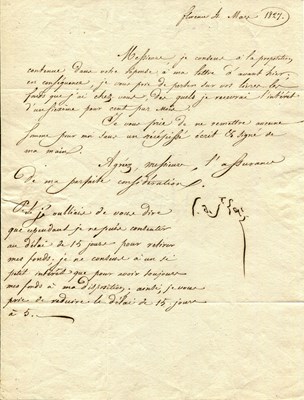 florence le Mars 1827.
Messieurs, je consens à la proposition
contenue dans votre réponse à ma lettre d'avant hier;
en conséquence, je vous prie de porter sur vos livres les
fonds que j'ai chez vous, des quels je recevrai l'intérêt
d'un sixieme pour cent par mois.
Et vous prie de ne remettre aucune
somme pour un sou un récépissé écrit & signé de
ma main.
Agréez, messieurs, l'assurance
de ma parfaite considération.
P.S. je oubliais de vous dire
que cependant je ne puis consentir
au délai de 15 jours pour retirer
mes fonds. je ne consens à un si
petit intérêt que pour avoir toujours
mes fonds à ma disposition; ainsi, je vous
prie de reduire le délai de 15 jours
à 5.